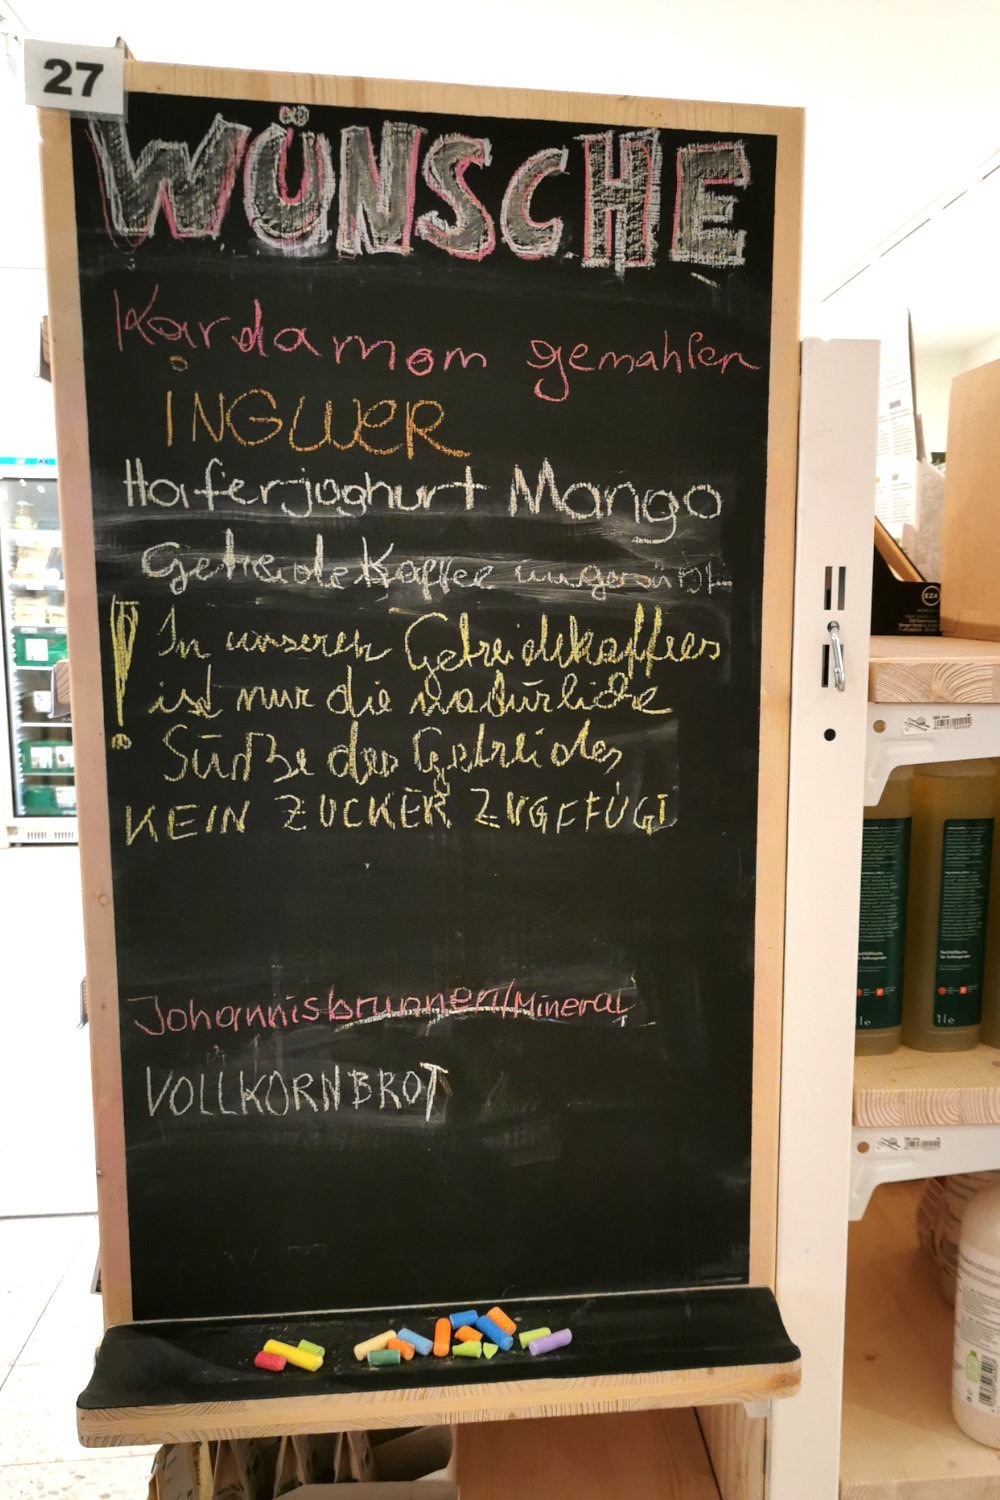 27
WÜNSCHE
Kardamom gemahlen
INGWER
Haferjoghurt Mango
Getreidekaffee ungesüßt
! In unseren Getreidekaffees
ist nur die natürliche
Süße des Getreides
KEIN ZUCKER ZUGEFÜGT
Johannisbrunnen/Mineral
VOLLKORNBROT
EZA
1 l e
1 l e